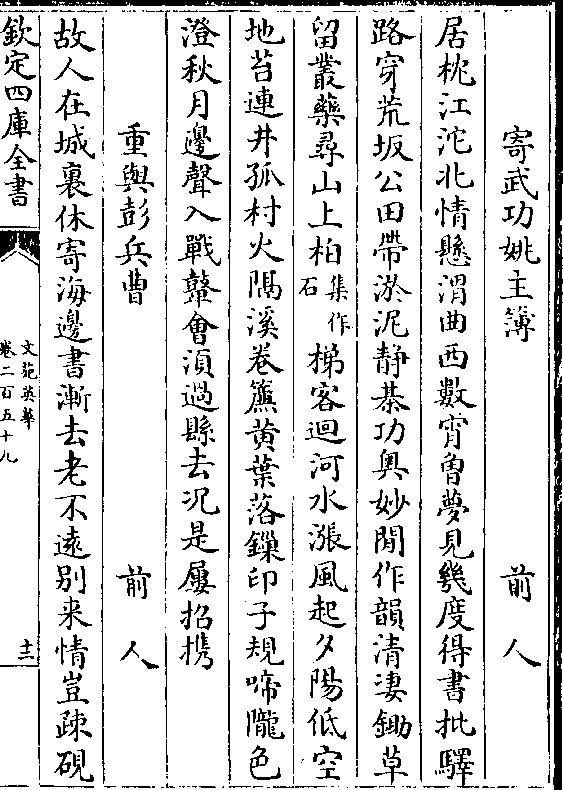 寄武功姚主簿　前人
居枕江沱北情懸渭曲西數宵曾夢見幾度得書批驛
路穿荒坂公田帶淤泥静棊功奥妙閒作韻清凄鋤草
留叢藥尋山上柏集作石梯客迴河水漲風起夕陽低空
地苔連井孤村火隔溪卷簾黄葉落鏁印子規啼隴色
澄秋月邊聲入戰鼙會湏過縣去况是屢招携
重與彭兵曹　前人
故人在城裏休寄海邊書漸去老不逺别来情豈疎硯
欽定四庫全書
文苑英華
卷二百五十九
十二